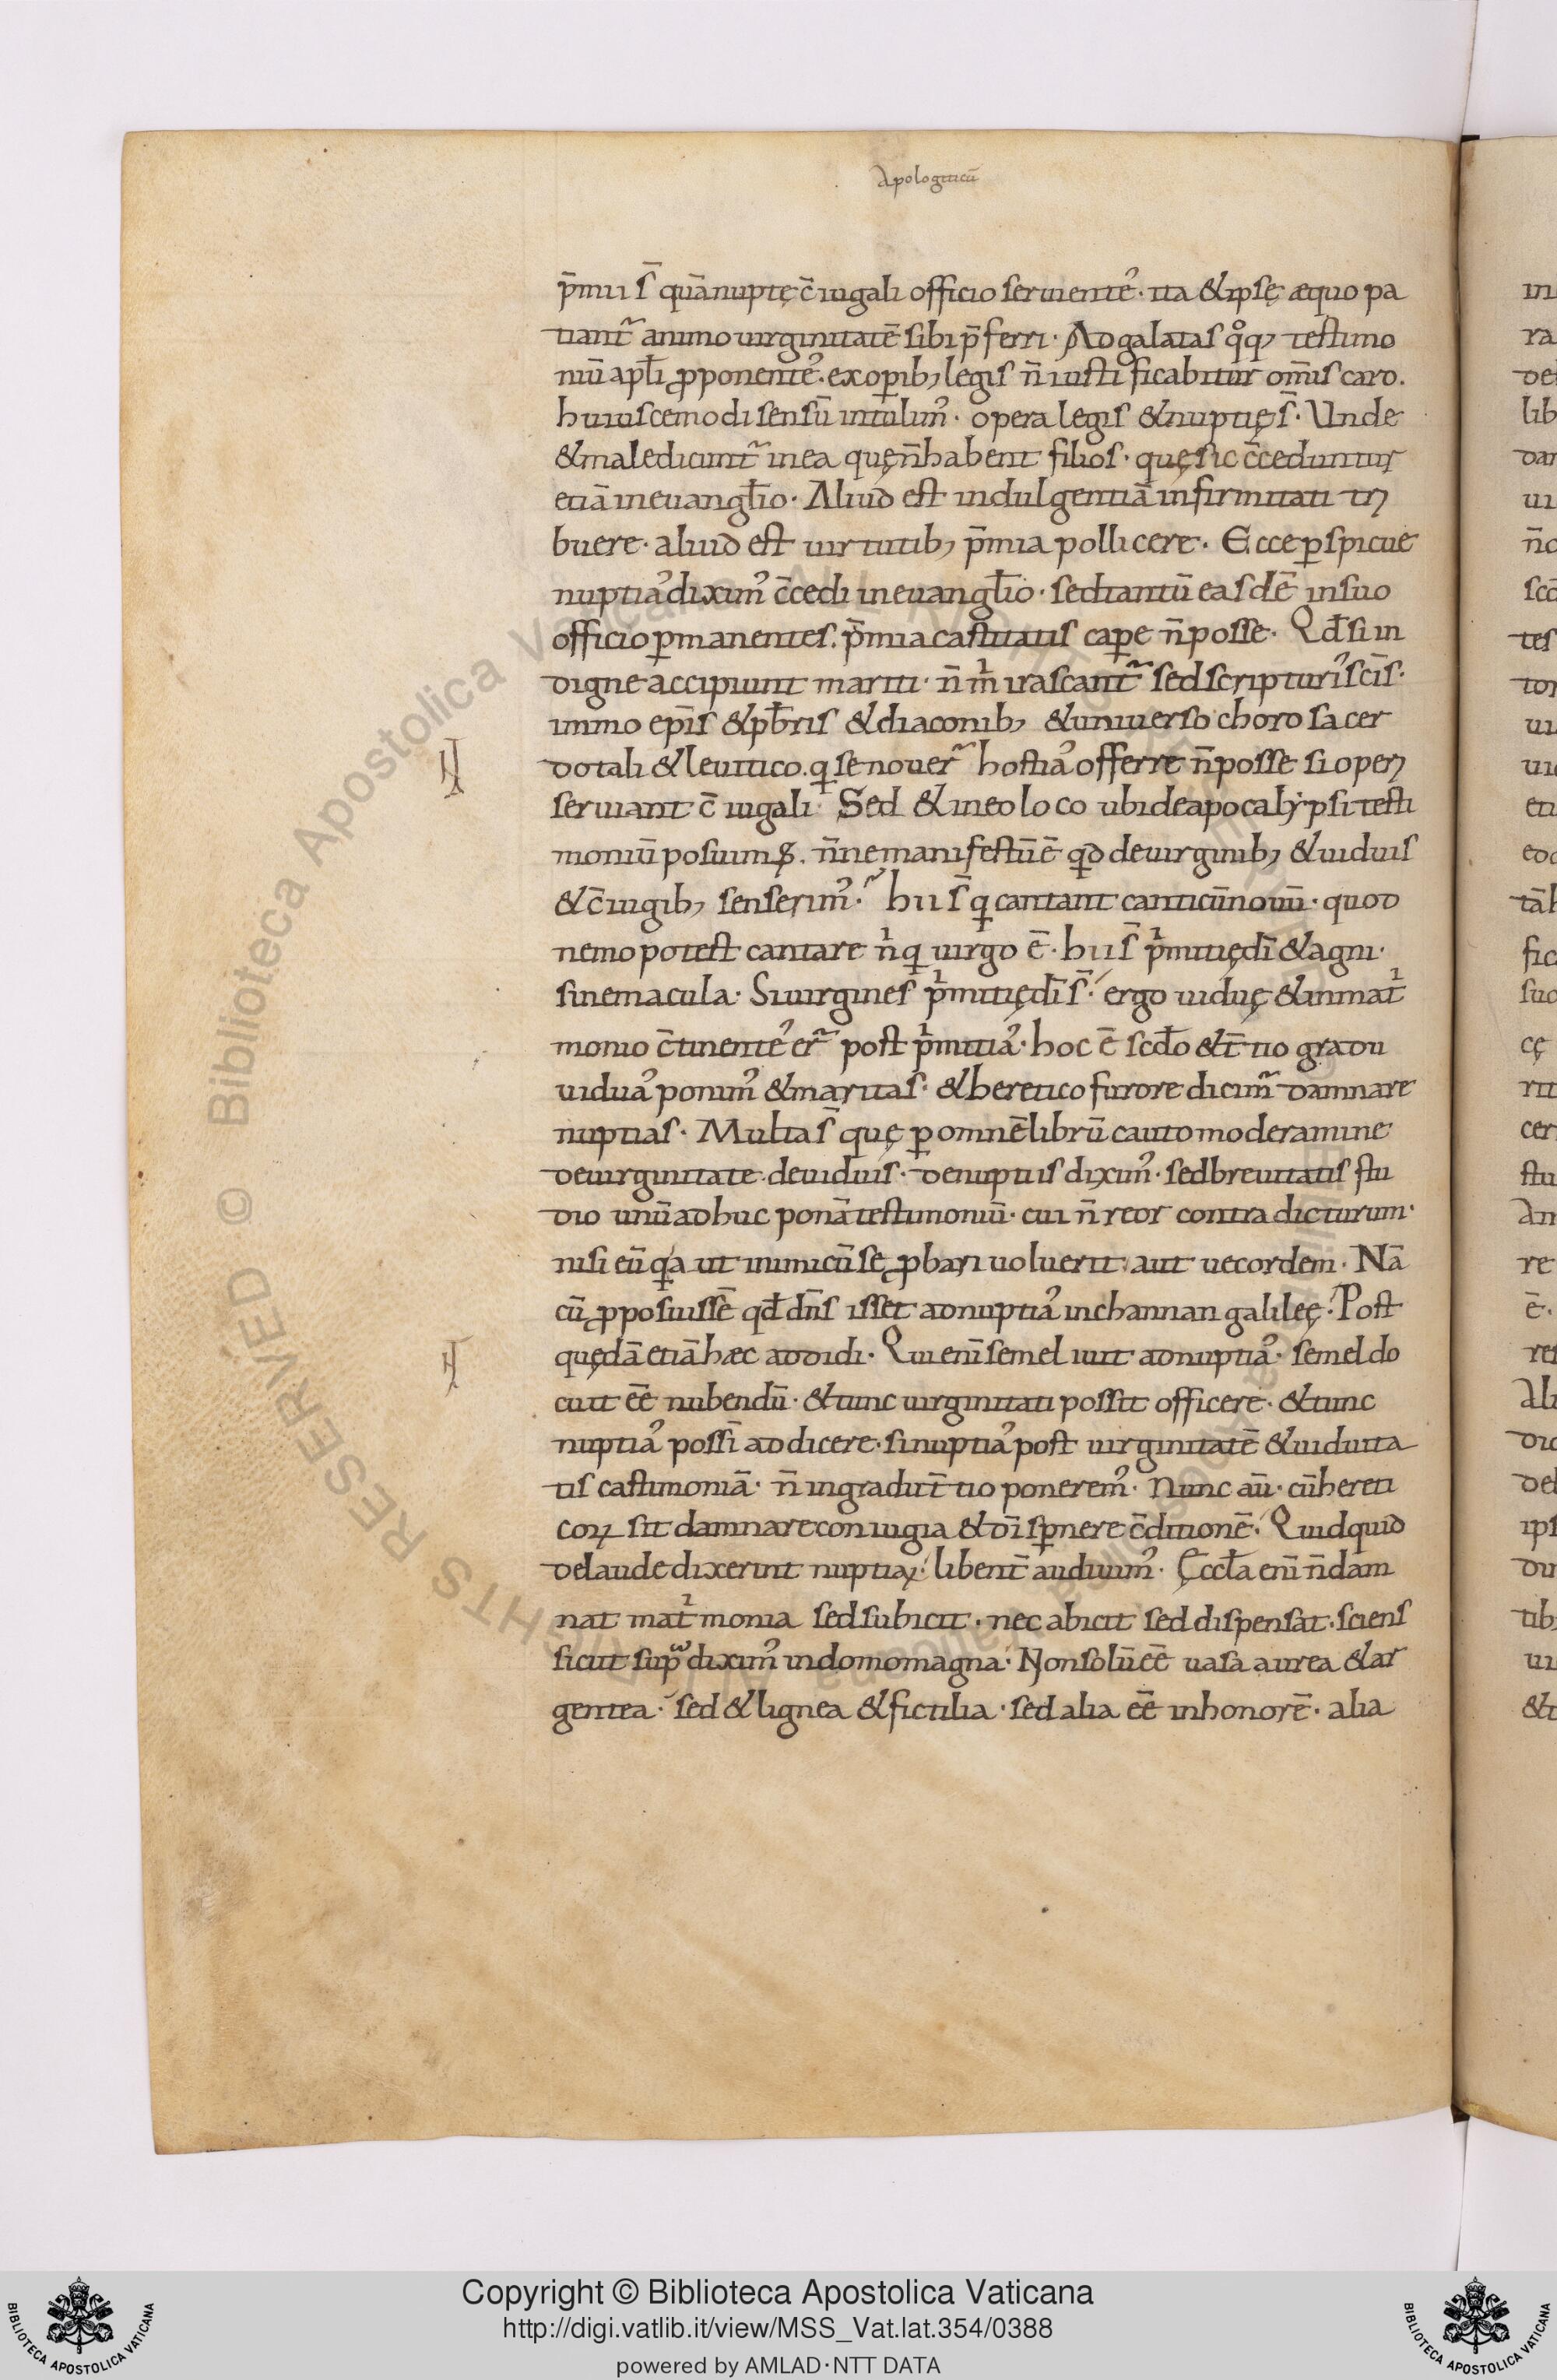 Apologiticū
p̄mii s̄ quānuptę c̄iugali officio seruiente᾽· ita & ipsę æquo pa
tiant᷑ animo uirginitatē sibi p̄ferri· Ad galatas qͦq; testimo
niū apłi ꝓponente᾽· ex oꝑib; legis n̄ iustificabitur om̄is caro.
huiuscemodi sensū intulim᾽· opera legis & nuptię s̄· Unde
& maledicunt᷑ in ea quę n̄ habent filios· quę sic c̄ceduntur
etiā in euanglio· Aliud est indulgentiā infirmitati tri
buere· aliud est uirtutib; p̄mia pollicere· Ecce ꝑspicue
nuptia᾽ dixim᾽ c̄cedi in euanglio· sed tantū easdē in suo
officio ꝑmanentes. p̄mia castitatis caꝑe n̄ posse· Qd̄ si in
digne accipiunt mariti· n̄ m irascant᷑ sed scripturi᾽ scīs·
immo ep̄is & pb̄ris & diaconib; & uniuerso choro sacer
dotali & leuitico. q̣ se nouer᷑ hostia᾽ offerre n̄ posse si operi
seruiant c̄iugali· Sed & in eo loco ubi de apocalẏpsi testi
moniū posuimꝰ. n̄ne manifestū ē qd de uirginib; & uiduis
& c̄iugib; senserim᾽· hii s̄ q cantant canticū nouū· quod
nemo potest cantare n q uirgo ē· hii s̄ pmitię dī & agni·
sine macula· Si uirgines pmitię dī s̄· ergo uiduę & in mat
monio c̄tinente᾽ er᷑ post pmitia᾽· hoc ē scd̄o & t̄tio gradu
uidua᾽ ponim᾽ & maritas· & heretico furore dicim᷑ damnare
nuptias· Multa s̄ quę ꝑ omnē librū cauto moderamine
de uirginitate· de uiduis· de nuptiis dixim᾽· sed breuitatis stu
dio unū adhuc ponā testimoniū· cui n̄ reor contra dicturum·
nisi eū qa ut inimicū se ꝓbari uoluerit· aut uecordem· Nā
cū ꝓposuissē qd̄ dn̄s isset ad nuptia᾽ in channan galileę· Post
quędā etiā hæc addidi· Qui enī semel iuit ad nuptia᾽· semel do
cuit eē nubendū· & tunc uirginitati possit officere· & tunc
nuptia᾽ possī addicere· si nuptia᾽ post uirginitatē & uiduita
tis castimoniā· n̄ in gradu t̄tio ponerem᾽· Nunc aū· cū hereti
coꝝ sit damnare coniugia & dī sꝑnere c̄ditionē· Quidquid
de laude dixerint nuptiaꝝ· libent̄ audiuim᾽· Ęccła enī n̄ dam
nat mat monia sed subicit· nec abicit sed dispensat· sciens
sicut supᷓ dixim᾽ in domo magna· Non solū eē uasa aurea & ar
gentea· sed & lignea & fictilia· sed alia eē in honorē· alia
Copyright © Biblioteca Apostolica Vaticana
http://digi.vatlib.it/view/MSS_Vat.lat.354/0388
powered by AMLAD·NTT DATA